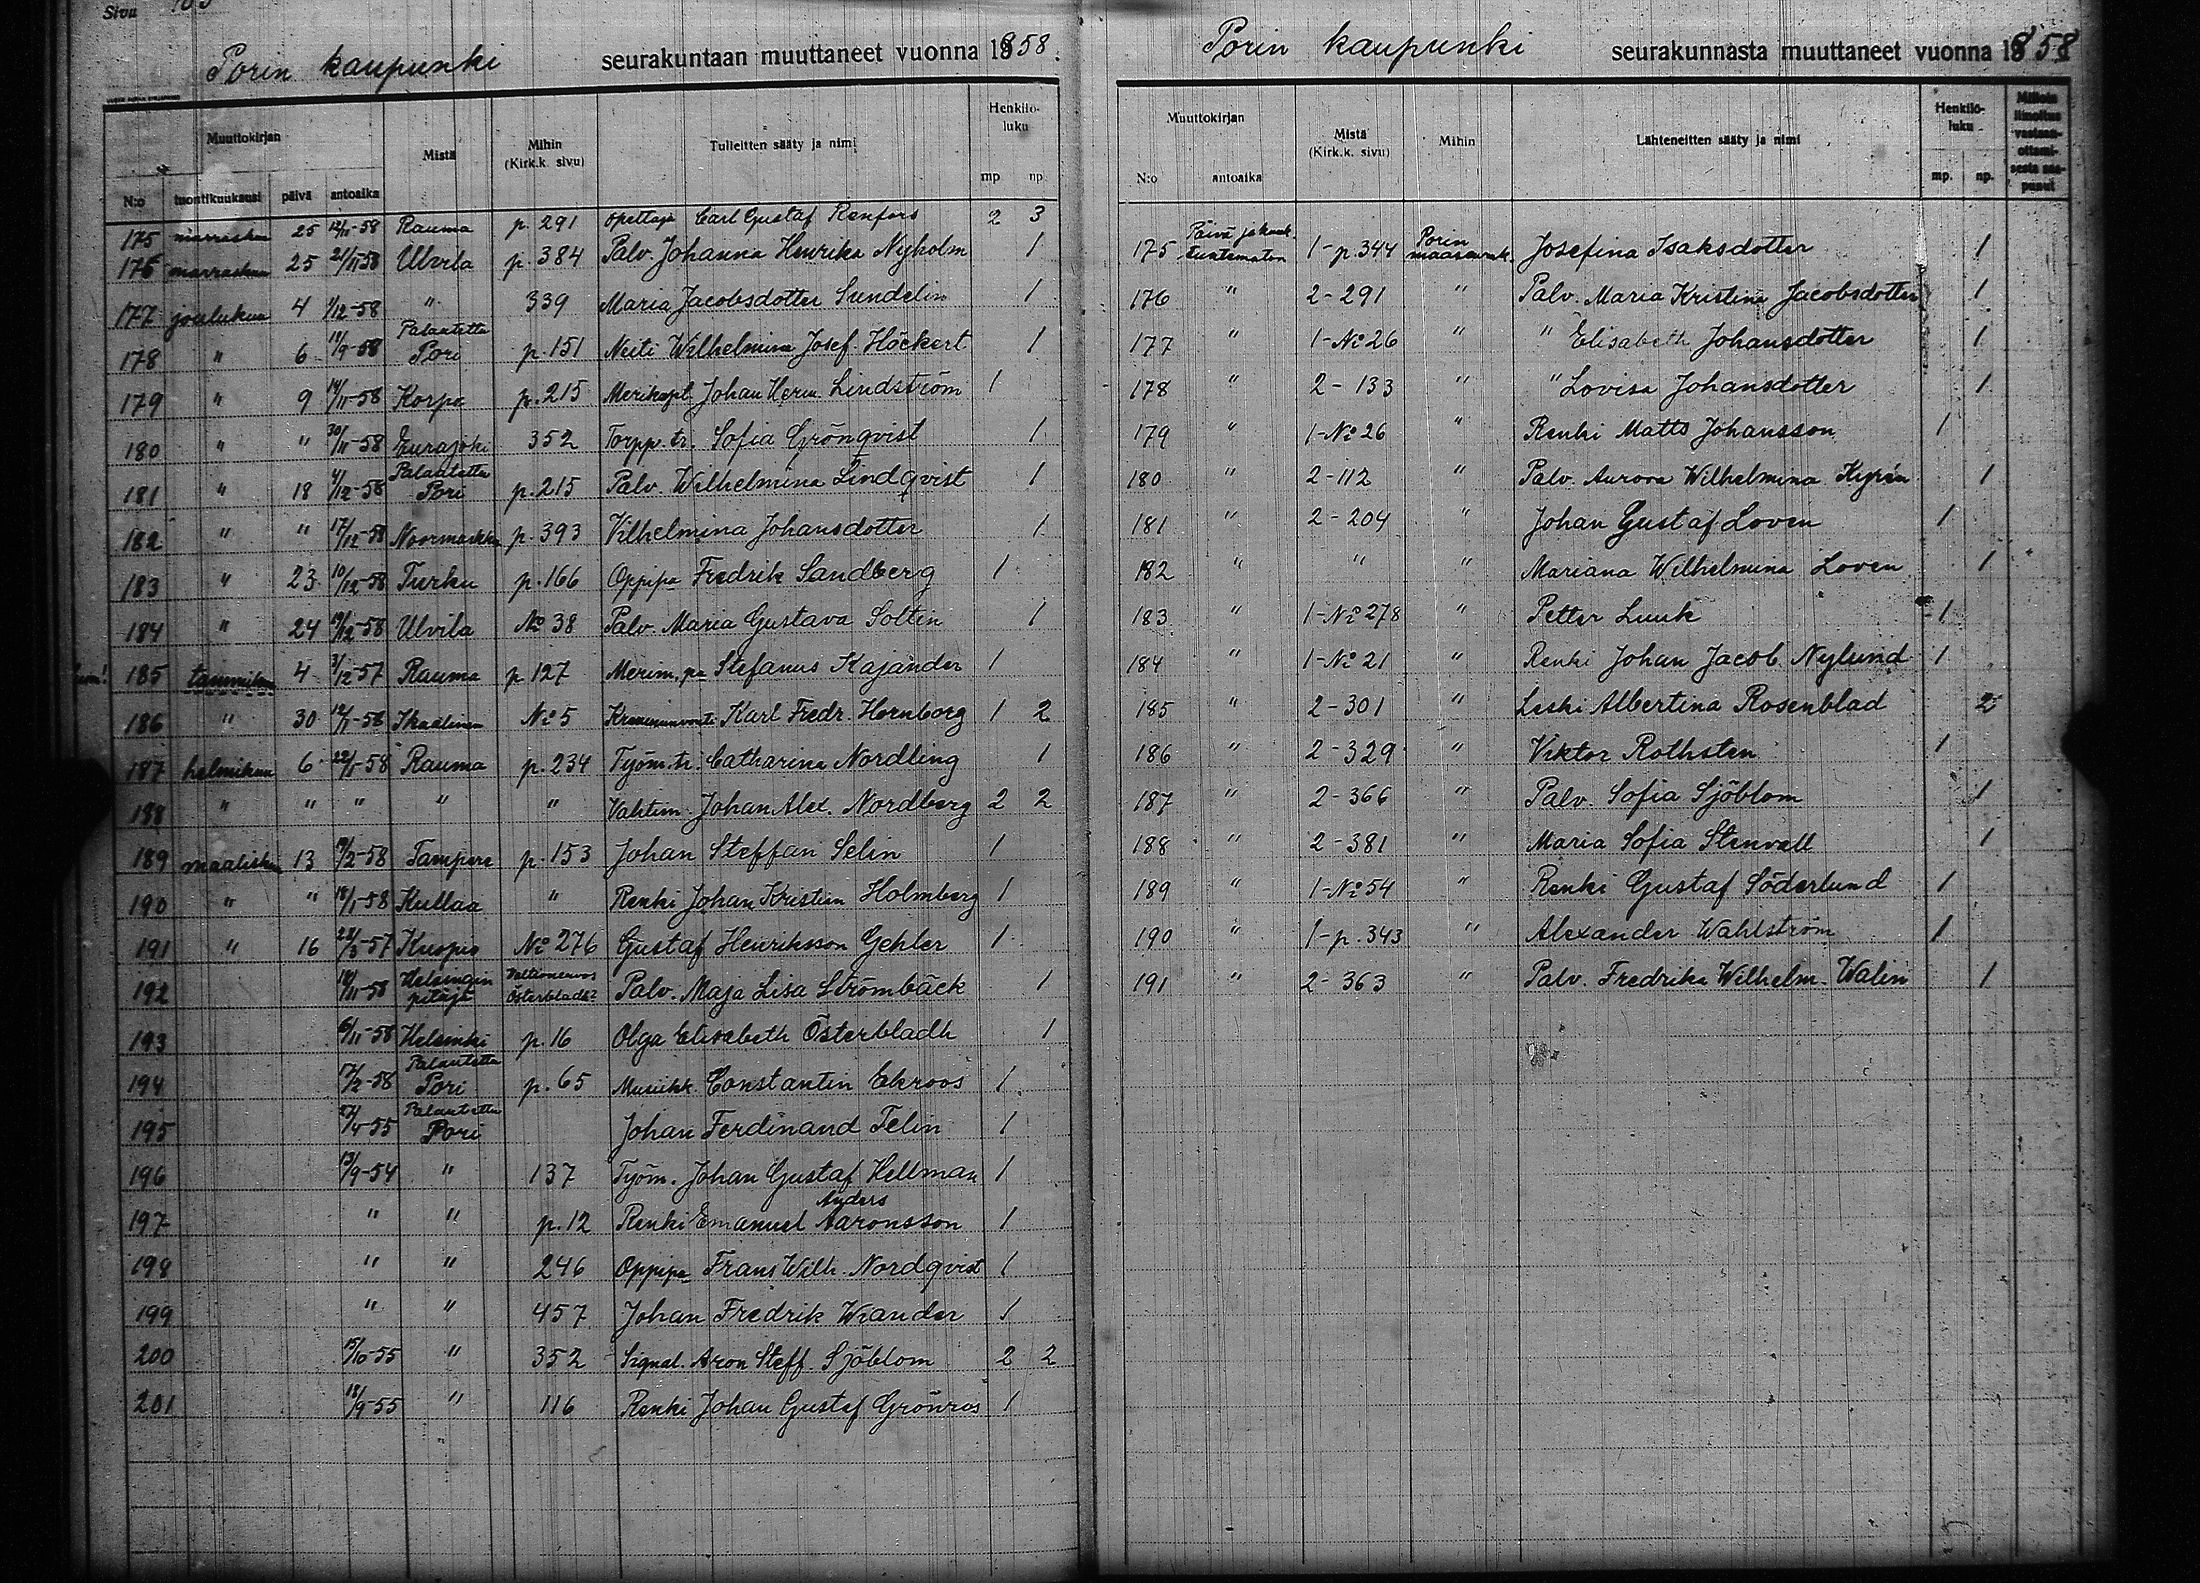 Sivu
Porin kaupunki seurakuntaan muuttaneet vuonna 1858.
Muuttokirjan Mistä Mihin (Kirk.k. sivu) Tulleitten sääty ja nimi Henkilö-luku
N:o tuontikuukausi päivä antoaika mp np
175 marraskuu 25 12/11-58 Rauma p. 291 Opettaja Carl Gustaf Renfors 2 3
176 marraskuu 25 21/11-58 Ulvila p. 384 Palv. Johanna Henrika Nyholm 1
177 joulukuu 4 1/12-58 " 339 Maria Jacobsdotter Sundelin 1
178 " 6 11/9-58 Palautettu Pori p. 151 Neiti Wilhelmina Josef. Höckert 1
179 " 9 14/11-58 Korpo p. 215 Merikapt. Johan Herm. Lindström 1
180 " " 30/11-58 Eurajoki 352 Torpp. tr. Sofia Grönqvist 1
181 " 18 4/12-58 Palautettu Pori p. 215 Palv. Wilhelmina Lindqvist 1
182 " " 17/12-58 Noormarkku p. 393 Vilhelmina Johansdotter 1
183 " 23 10/12-58 Turku p. 166 Oppipa Fredrik Sandberg 1
184 " 24 19/12-58 Ulvila No 38 Palv. Maria Gustava Soltin 1
185 tammikuu 4 3/12-57 Rauma p 127 Merim. pa Stefanus Kajander 1
186 " 30 12/1-58 Ikaalinen No 5 Kruununvouti Karl Fredr. Hornborg 1 2
187 helmikuu 6 22/1-58 Rauma p. 234 Työm. tr. Catharina Nordling 1
188 " " " " " Vahtim. Johan Alex. Nordberg 2 2
189 maalisku 13 19/2-58 Tampere p. 153 Johan Steffan Selin 1
190 " " 18/1-58 Kullaa " Renki Johan Kristian Holmberg 1
191 " 16 23/3-57 Kuopio No 276 Gustaf Henriksson Gehler 1
192 18/11-58 Helsingin pitäjä Österbladh? Palv. Maja Lisa Strömbäck 1
193 6/11-58 Helsinki p. 16 Olga Elisabeth Österbladh 1
194 17/2-58 Palautettu Pori p. 65 Musikk. Constantin Ekroos 1
195 27/4-55 Palautettu Pori Johan Ferdinand Telin 1
196 13/9-54 " 137 Työm. Johan Gustaf Hellman 1
197 " " p. 12 Renki Emanuel Anders Aaronsson 1
198 " " 246 Oppipa Frans Wilh. Nordqvist 1
199 " " 457 Johan Fredrik Wiander 1
200 15/10-55 " 352 Signal. Aron Steff. Sjöblom 2 2
201 18/9-55 " 116 Renki Johan Gustaf Grönros 1
Porin kaupunki seurakunnasta muuttaneet vuonna 1858
Muuttokirjan Mistä (Kirk.k. sivu) Mihin Lähteneitten sääty ja nimi Henkilö-luku Milloin ilmoitus vastaan-ottami-sesta saa-punut
N:o antoaika mp. np.
175 Päivä ja kuuk. tuntematon 1-p. 344 Porin maaseurak. Josefina Isaksdotter 1
176 " 2-291 " Palv. Maria Kristina Jacobsdotter 1
177 " 1-No 26 " " Elisabeth Johansdotter 1
178 " 2-133 " " Lovisa Johansdotter 1
179 " 1-No 26 " Renki Matts Johansson 1
180 " 2-112 " Palv. Aurora Wilhelmina Kyrén 1
181 " 2-204 " Johan Gustaf Loven 1
182 " " " Mariana Wilhelmina Loven 1
183 " 1-No 278 " Petter Luuk 1
184 " 1-No 21 " Renki Johan Jacob Nylund 1
185 " 2-301 " Leski Albertina Rosenblad 2
186 " 2-329 " Viktor Rothsten 1
187 " 2-366 " Palv. Sofia Sjöblom 1
188 " 2-381 " Maria Sofia Stenvall 1
189 " 1-No 54 " Renki Gustaf Söderlund 1
190 " 1-p. 343 " Alexander Wahlström 1
191 " 2-363 " Palv. Fredrika Wilhelm. Walin 1